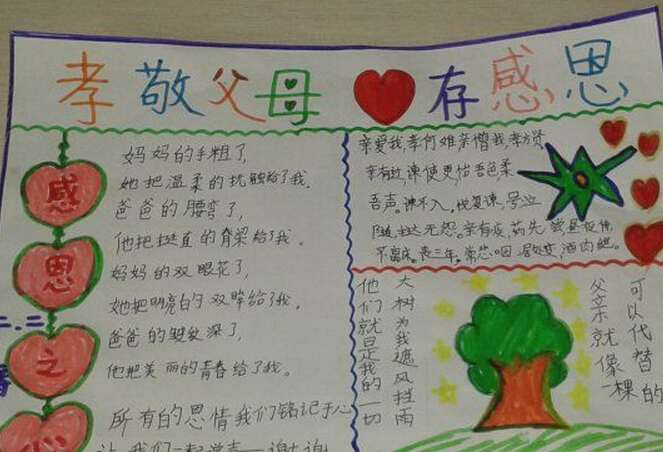 孝敬父母 存感恩
感
恩
之
心
妈妈的手粗了,
她把温柔的抚触给了我。
爸爸的腰弯了,
他把挺直的脊梁给了我。
妈妈的双眼花了,
她把明亮的双眸给了我。
爸爸的皱纹深了,
他把美丽的青春给了我。
所有的恩情我们铭记于心
让我们一起说声——谢谢
亲爱我,孝何难,亲憎我,孝方贤。
亲有过,谏使更,怡吾色,柔
吾声。谏不入。悦复谏,号泣
随,挞无怨。亲有疾,药先尝,昼夜侍,
不离床。丧三年。常悲咽。居处变,酒肉绝。
大树为我遮风挡雨
他们就是我的一切
可以代替的
父亲就像一棵